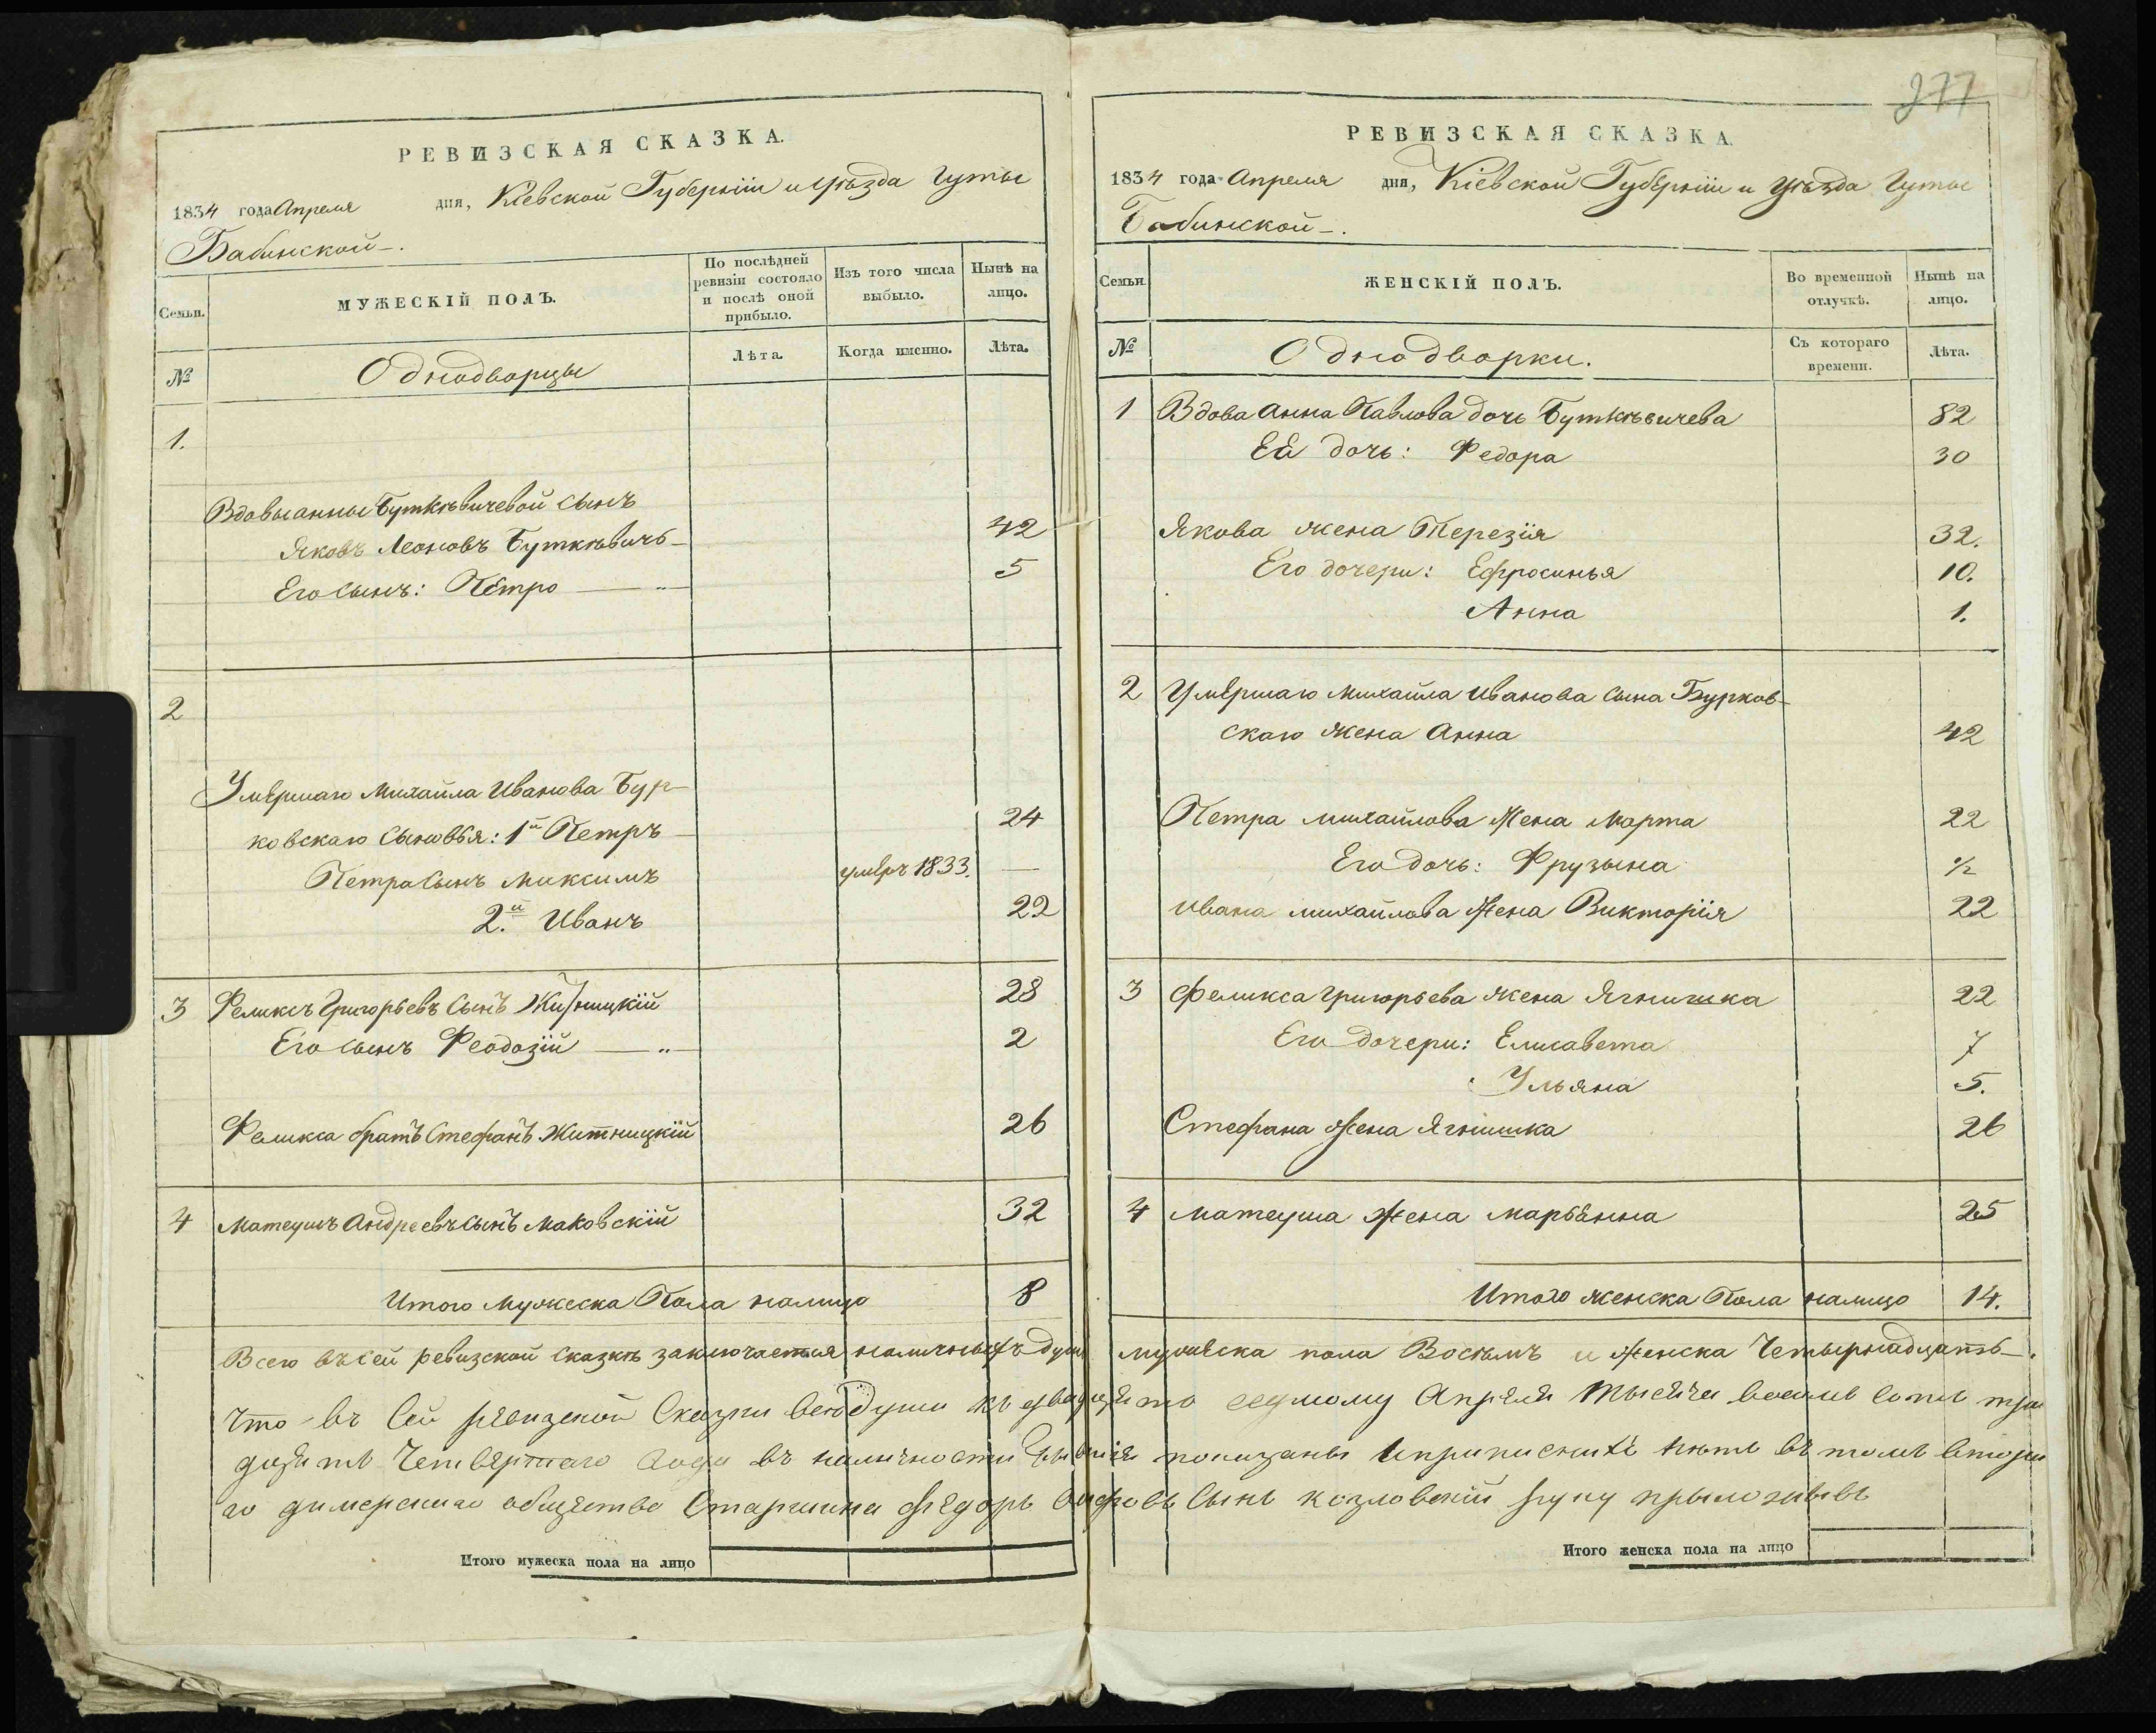 РЕВИЗСКАЯ СКАЗКА.
1834 года Апреля дня, Кіевской Губерніи и уѣзда Гуты
Бабинской
Семьи.
МУЖЕСКІЙ ПОЛЪ.
По послѣдней ревизіи состояло и послѣ оной прибыло.
Изъ того числа выбыло.
Нынѣ на лицо.
№
Однодворцы
Лѣта.
Когда именно.
Лѣта.
1.
Вдовы анны Буткѣвичевой сынъ
Яковъ Леоновъ Буткѣвичь 42
Его сынъ: Петро — " — 5
2
Умершаго Михайла Иванова Бур-
ковскаго сыновья: 1й Петръ 24
Петра сынъ Максимъ умеръ 1833. —
2.й Иванъ 22
3 Феликсъ Григорьевъ сынъ Житницкій 28
Его сынъ Феодозій — " — 2
Феликса братъ Стефанъ Житницкій 26
4 Матеушъ Андреевъ сынъ Маковскій 32
Итого Мужеска Пола налицо 8
277
РЕВИЗСКАЯ СКАЗКА
1834 года Апреля дня, Кіевской Губерніи и уѣзда Гуты
Бабинской
Семьи.
ЖЕНСКІЙ ПОЛЪ.
Во временной отлучкѣ.
Нынѣ на лицо.
№
Однодворки.
Съ котораго времени.
Лѣта.
1 Вдова Анна Павлова дочь Буткѣвичева 82
Её дочь: Федора 30
Якова жена Терезія 32.
Его дочери: Ефросинья 10.
Анна 1.
2 Умершаго Михайла Иванова сына Бурков-
скаго жена Анна 42
Петра михайлова жена Марта 22
Его дочь: Фрузына ½
Ивана михайлова жена Викторія 22
3 Феликса Григорьева жена Ягнишка 22
Его дочери: Елисавета 7
Ульяна 5.
Стефана жена Ягнишка 26
4 Матеуша жена Марьянна 25
Итого женска Пола налицо 14.
Всего въ сей ревизской сказкѣ заключается наличныхъ душъ мужеска пола Восѣмъ и женска Четырнадцать.
что въ сей ревизской Сказки все души къ седмому Апреля тысяча восемь сотъ три
дцять Четвертаго года въ наличности показаны и нетъ въ томъ
димерскаго общества Старшина Федоръ сынъ козловскій руку
Итого мужеска пола на лицо
Итого женска пола на лицо